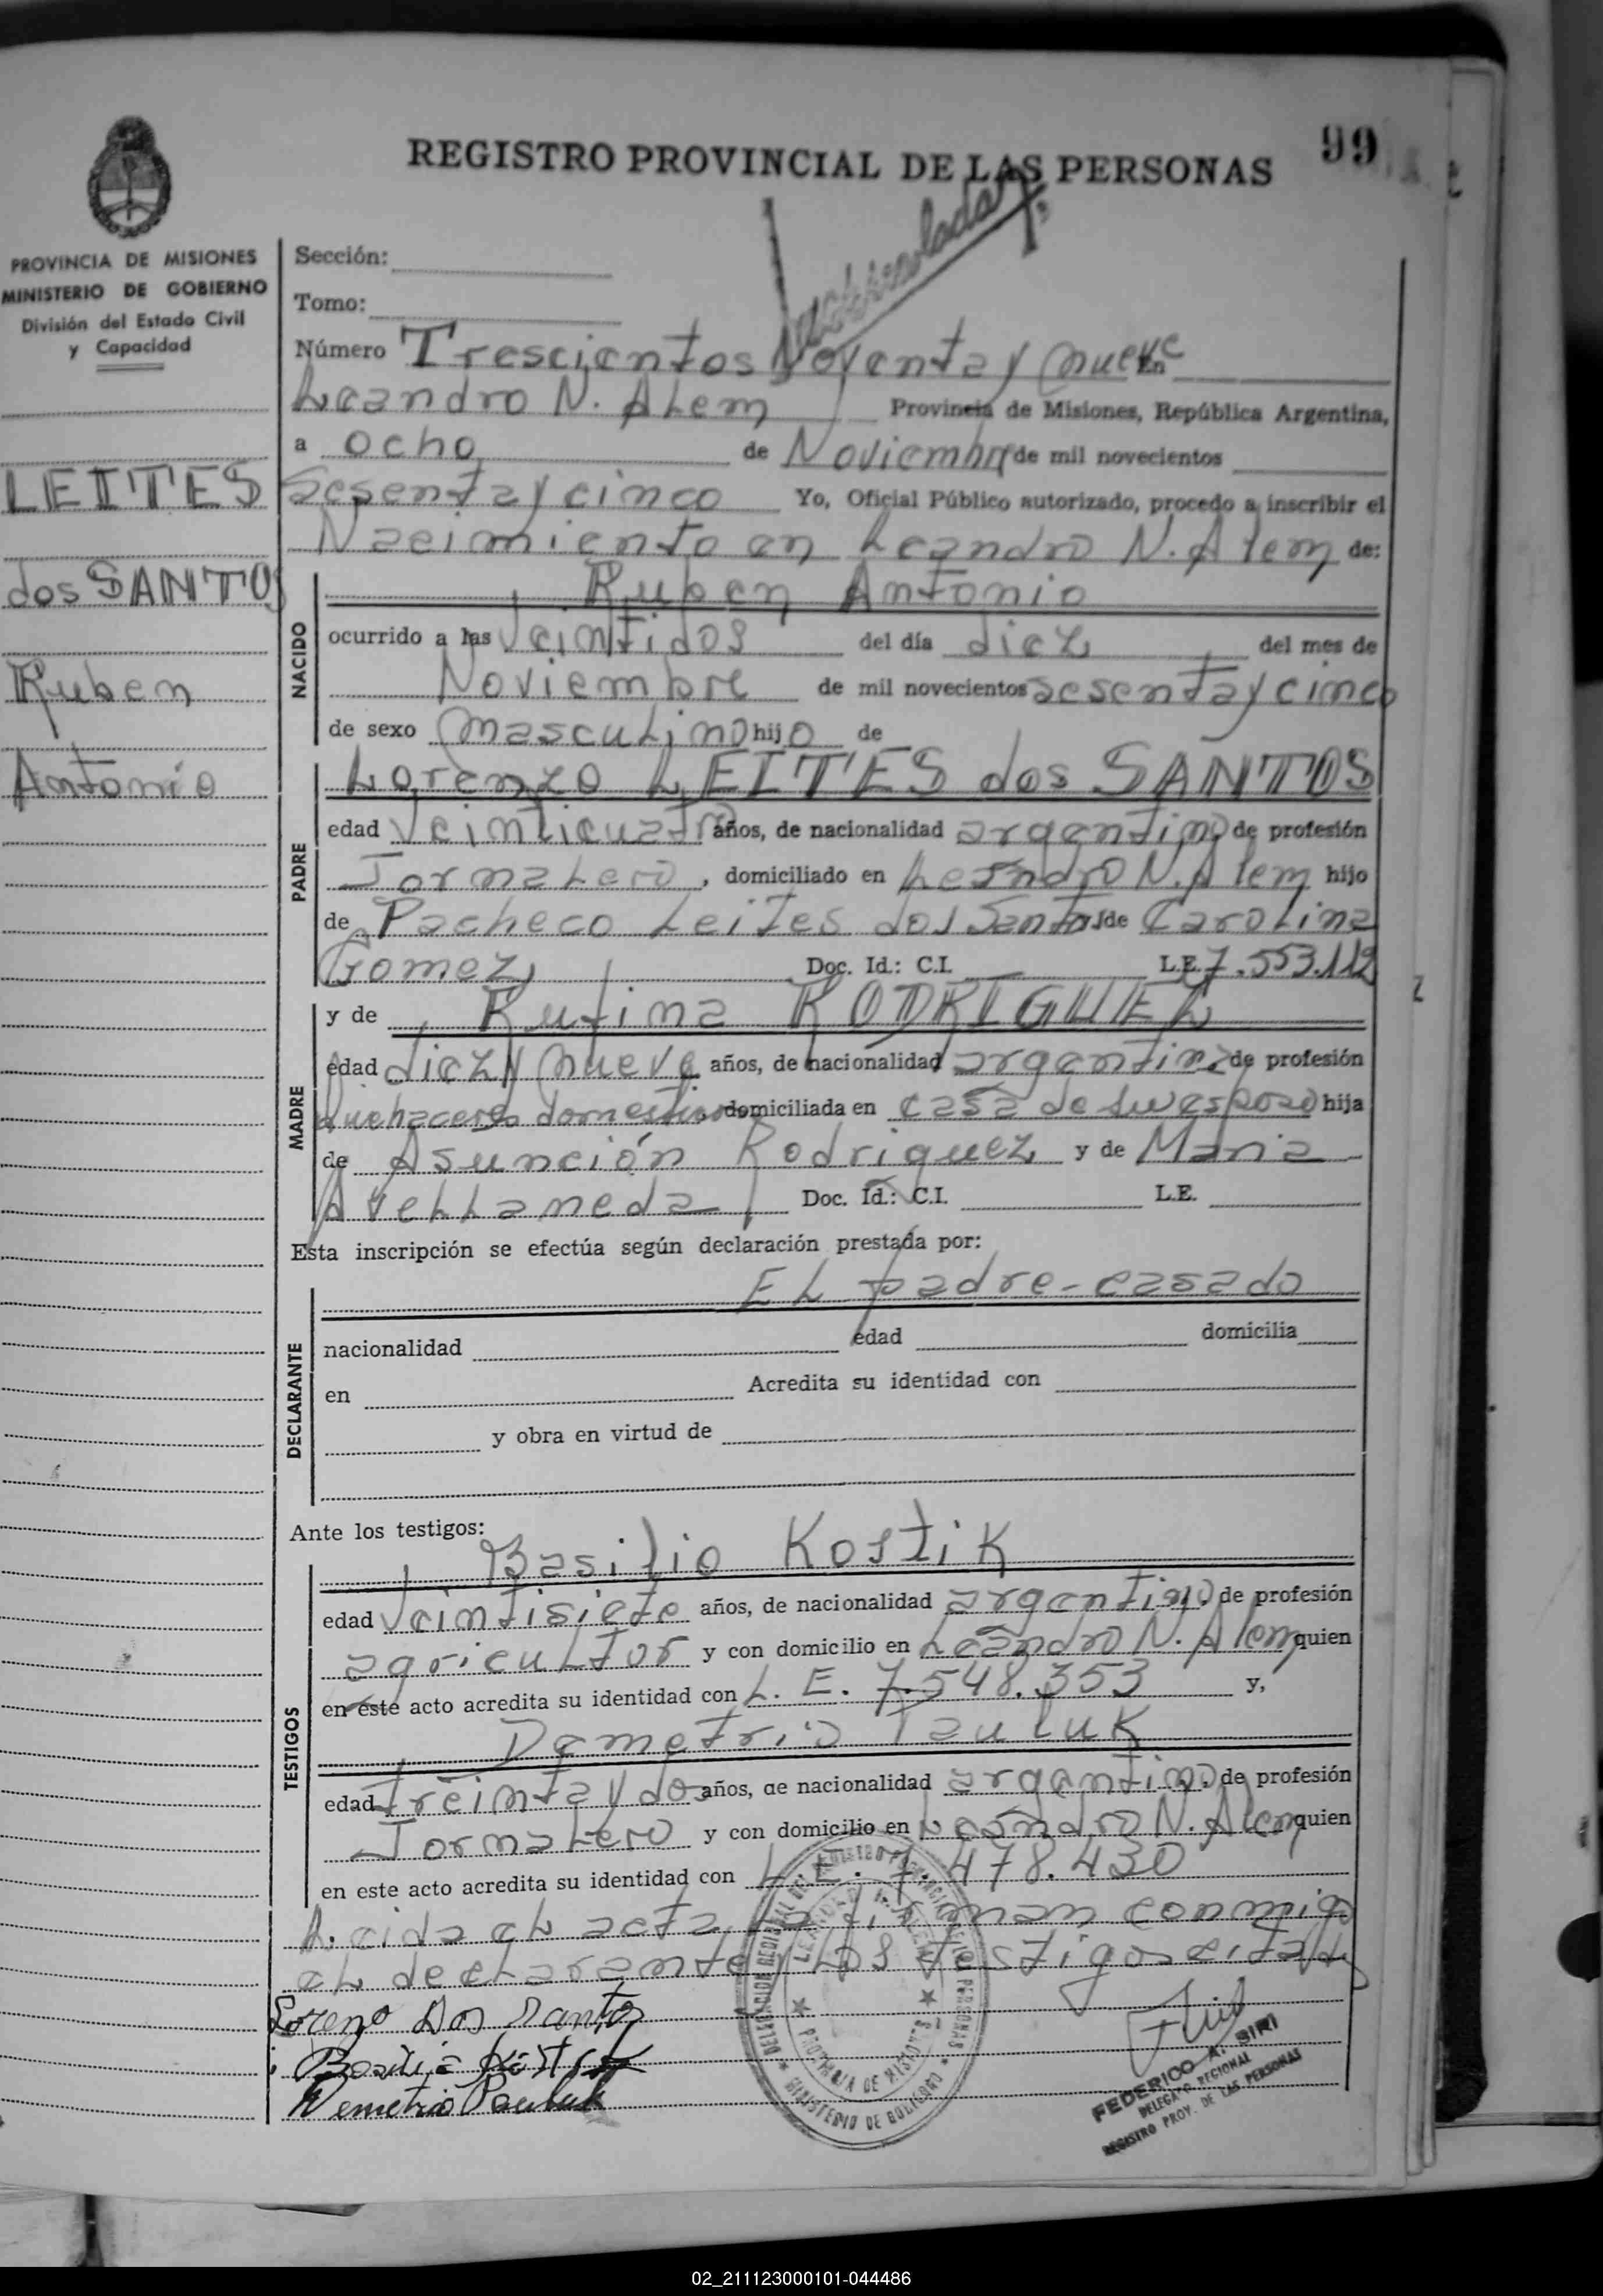 99
REGISTRO PROVINCIAL DE LAS PERSONAS
PROVINCIA DE MISIONES
MINISTERIO DE GOBIERNO
División del Estado Civil
y Capacidad
LEITES
dos SANTOS
Ruben
Antonio
Sección:
Tomo:
Número Trescientos Noventa y nueve En
Leandro N. Alem Provincia de Misiones, República Argentina,
a ocho de Noviembre de mil novecientos
Sesenta y cinco Yo, Oficial Público autorizado, procedo a inscribir el
Nacimiento en Leandro N. Alem de:
NACIDO
Ruben Antonio
ocurrido a las Veintidos del día diez del mes de
Noviembre de mil novecientos sesenta y cinco
de sexo masculino hijo de
PADRE
Lorenzo LEITES dos SANTOS
edad Veinticuatro años, de nacionalidad argentino de profesión
Jornalero, domiciliado en Leandro N. Alem hijo
de Pacheco Leites dos Santos de Carolina
Gomez Doc. Id.: C.I. L.E. 7.553.112
MADRE
y de Rufina RODRIGUEZ
edad diez y nueve años, de nacionalidad argentina de profesión
Quehaceres domesticos domiciliada en casa de su esposo hija
de Asunción Rodriguez y de Maria
Avellaneda Doc. Id.: C.I. L.E.
Esta inscripción se efectúa según declaración prestada por:
DECLARANTE
El padre-casado
nacionalidad edad domicilia
en Acredita su identidad con
y obra en virtud de
Ante los testigos:
TESTIGOS
Basilio Kostik
edad Veintisiete años, de nacionalidad argentino, de profesión
agricultor y con domicilio en Leandro N. Alem quien
en este acto acredita su identidad con L. E. 7.548.353 y,
Demetrio Pauluk
edad treinta y dos años, de nacionalidad argentino, de profesión
Jornalero y con domicilio en Leandro N. Alem quien
en este acto acredita su identidad con L. E. 7.478.430
Leida el acta, la firman conmigo
el declarante y los testigos citados
Lorenzo Dos Santos
Basilio Kostik
Demetrio Pauluk
FEDERICO A. SIRI
DELEGADO REGIONAL
REGISTRO PROV. DE LAS PERSONAS
02_211123000101-044486